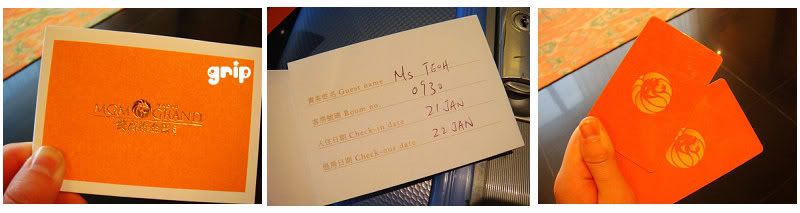 grip
MGM GRAND
賓客姓名 Guest name Ms TEOH
客房號碼 Room no. 0930
入住日期 Check-in date 21 JAN
退房日期 Check-out date 22 JAN